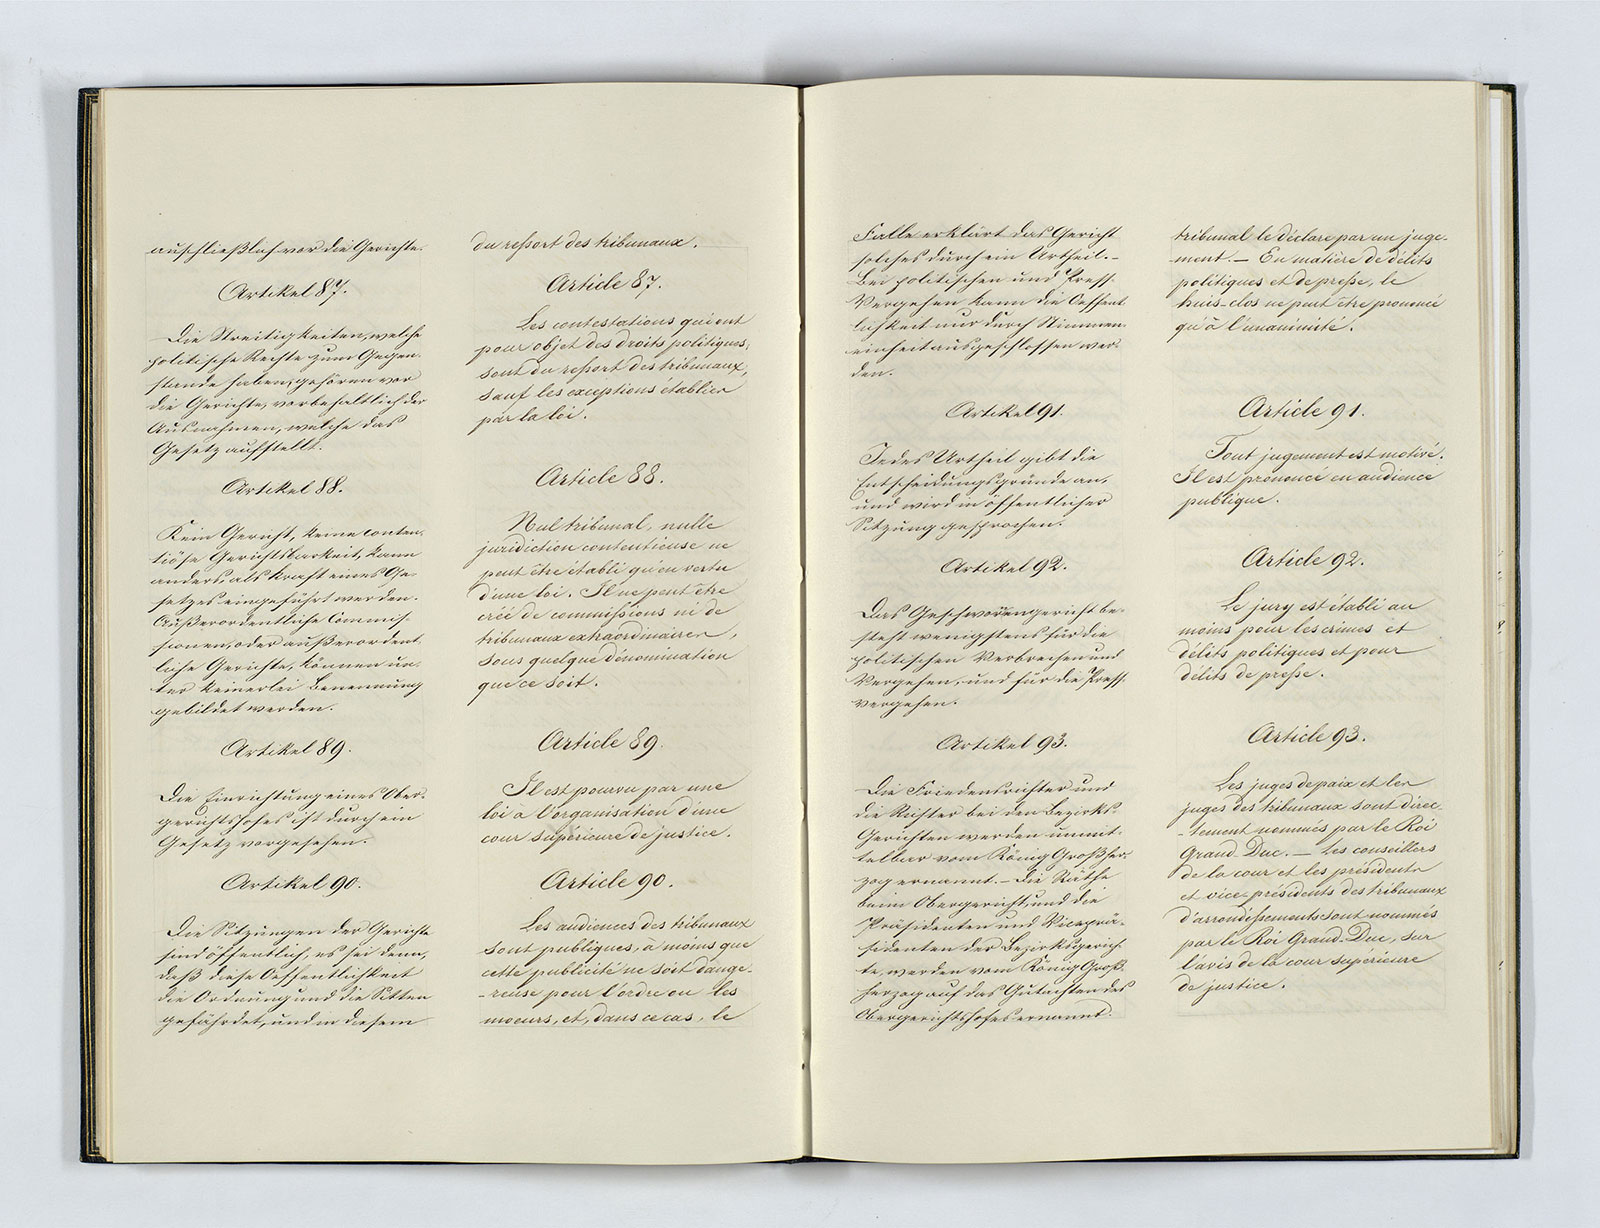 auschließlich vor die Gerichte.
Artikel 87.
Die Streitigkeiten, welche
politische Rechte zum Gegen-
stande haben, gehören vor
die Gerichte, vorbehaltlich der
Ausnahmen, welche das
Gesetz aufstellt.
Artikel 88.
Kein Gericht, keine conten-
tiöse Gerichtsbarkeit, kann
anders als kraft eines Ge-
setzes eingeführt werden.
Außerordentliche Commis-
sionen, oder außerordent-
liche Gerichte, können un-
ter keinerlei Benennung
gebildet werden.
Artikel 89.
Die Einrichtung eines Ober-
gerichtshofes ist durch ein
Gesetz vorgesehen.
Artikel 90.
Die Sitzungen der Gerichte
sind öffentlich, es sei denn,
daß diese Oeffentlichkeit
die Ordnung und die Sitten
gefährdet, und in diesem
du ressort des tribunaux.
Article 87.
Les contestations qui ont
pour objet des droits politiques,
sont du ressort des tribunaux,
sauf les exceptions établies
par la loi.
Article 88.
Nul tribunal, nulle
juridiction contentieuse ne
peut être établi qu'en vertu
d'une loi. Il ne peut être
créé de commissions ni de
tribunaux extraordinaires,
sous quelque dénomination
que ce soit.
Article 89.
Il est pourvu par une
loi à l'organisation d'une
cour supérieure de justice.
Article 90.
Les audiences des tribunaux
sont publiques, à moins que
cette publicité ne soit dange-
-reuse pour l'ordre ou les
moeurs, et, dans ce cas, le
Falle erklärt das Gericht
solches durch ein Urtheil. –
Bei politischen und Press-
Vergehen kann die Oeffent-
lichkeit nur durch Stimmen-
einheit ausgeschlossen wer-
den.
Artikel 91.
Jedes Urtheil gibt die
Entscheidungsgründe an,
und wird in öffentlicher
Sitzung gesprochen.
Artikel 92.
Das Geschworengericht be-
steht wenigstens für die
politischen Verbrechen und
Vergehen, und für die Press-
vergehen.
Artikel 93.
Die Friedensrichter und
die Richter bei den Bezirks-
Gerichten werden unmit-
telbar vom König Großher-
zog ernannt. – Die Räthe
beim Obergericht, und die
Präsidenten und Viceprä-
sidenten der Bezirksgerich-
te, werden vom König Groß-
herzog auf das Gutachten des
Obergerichtshofes ernannt.
tribunal le déclare par un juge-
ment. – En matière de délits
politiques et de presse, le
huis-clos ne peut être prononcé
qu'à l'unanimité.
Article 91.
Tout jugement est motivé.
Il est prononcé en audience
publique.
Article 92.
Le jury est établi au
moins pour les crimes et
délits politiques et pour
délits de presse.
Article 93.
Les juges de paix et les
juges des tribunaux sont direc-
-tement nommés par le Roi
Grand-Duc. – Les conseillers
de la cour et les présidents
et vice-présidents des tribunaux
d'arrondissements sont nommés
par le Roi Grand-Duc, sur
l'avis de la cour supérieure
de justice.